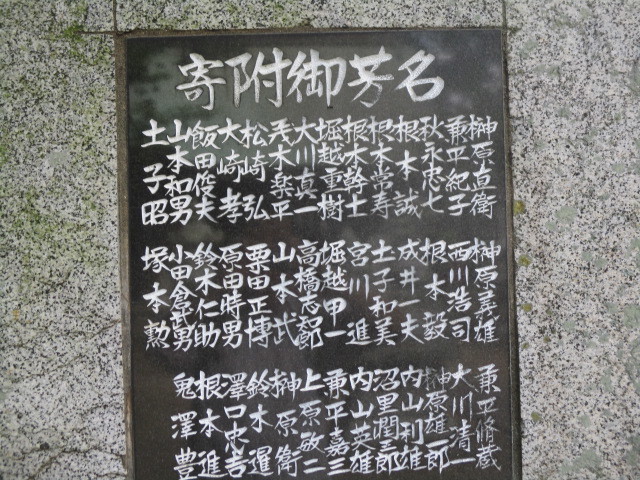 寄附御芳名
榊原直衛
兼平紀子
秋永忠七
根本誠
根本常寿
根本幹士
堀越重樹
大川真一
茂木楽平
松崎弘
大崎孝
飯田俊夫
山本和男
土子昭
榊原義雄
西川浩司
根本毅
成井一夫
土子和美
宮川進
堀越甲一
高橋志郎
山本武
栗田正博
原田時男
鈴木仁助
小田倉武男
塚本勲
兼平脩蔵
大川清一
榊原雄一郎
内山利雄
沼里潤三郎
内山英雄
兼平嘉三
上原敬二
榊原衛
鈴木暹
澤口忠吉
根本進
鬼澤豊